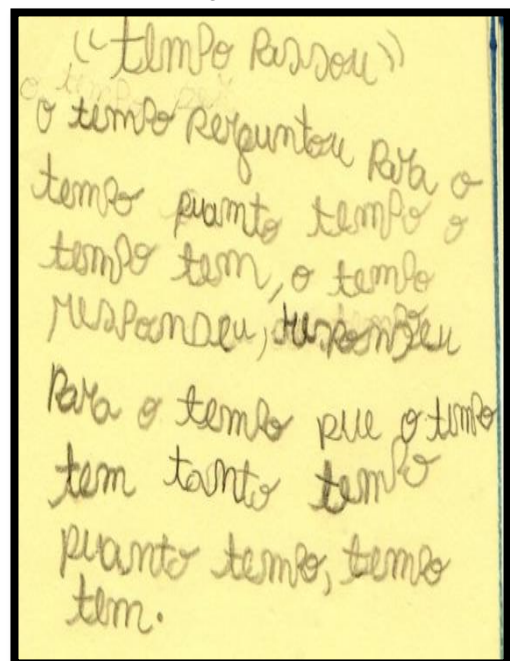 "tempo Passou"
o tempo
o tempo Perguntou Para o
tempo quanto tempo o
tempo tem, o tempo
respondeu, respondeu
Para o tempo que o tempo
tem tanto tempo
quanto tempo, tempo
tem.